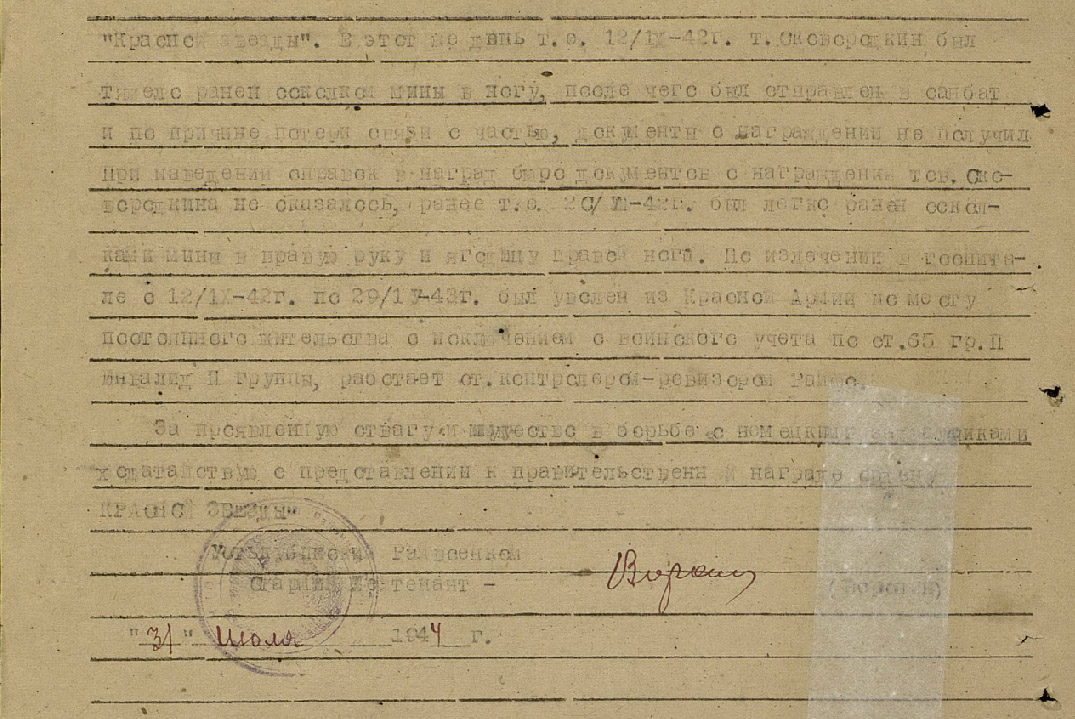 "Красной звезды". В этот же день т.е. 12/IX-42г. т.Сковородкин был
тяжело ранен осколком мины в ногу, после чего был отправлен в санбат
и по причине потери связи с частью, документы о награждении не получил
При наведении справок в наград бюро документов о награждении тов. Ско-
вородкина не оказалось, ранее т.е. был легко ранен оскол-
ками мины в правую руку и ягодицу правой ноги. По излечении в госпита-
ле с 12/IX-42г. по 29/IV-43г. был уволен из Красной Армии по месту
постоянного жительства с исключением с воинского учета по ст.65 гр.II
Инвалид II группы, работает ст.контролером-ревизором Райфо.
За проявленную отвагу и мужество в борьбе с немецкими
ходатайствую о представлении к правительственной награде ордену
КРАСНОЙ ЗВЕЗДЫ"
Райвоенком
Старший Лейтенант -
"31" Июля 1944 г.